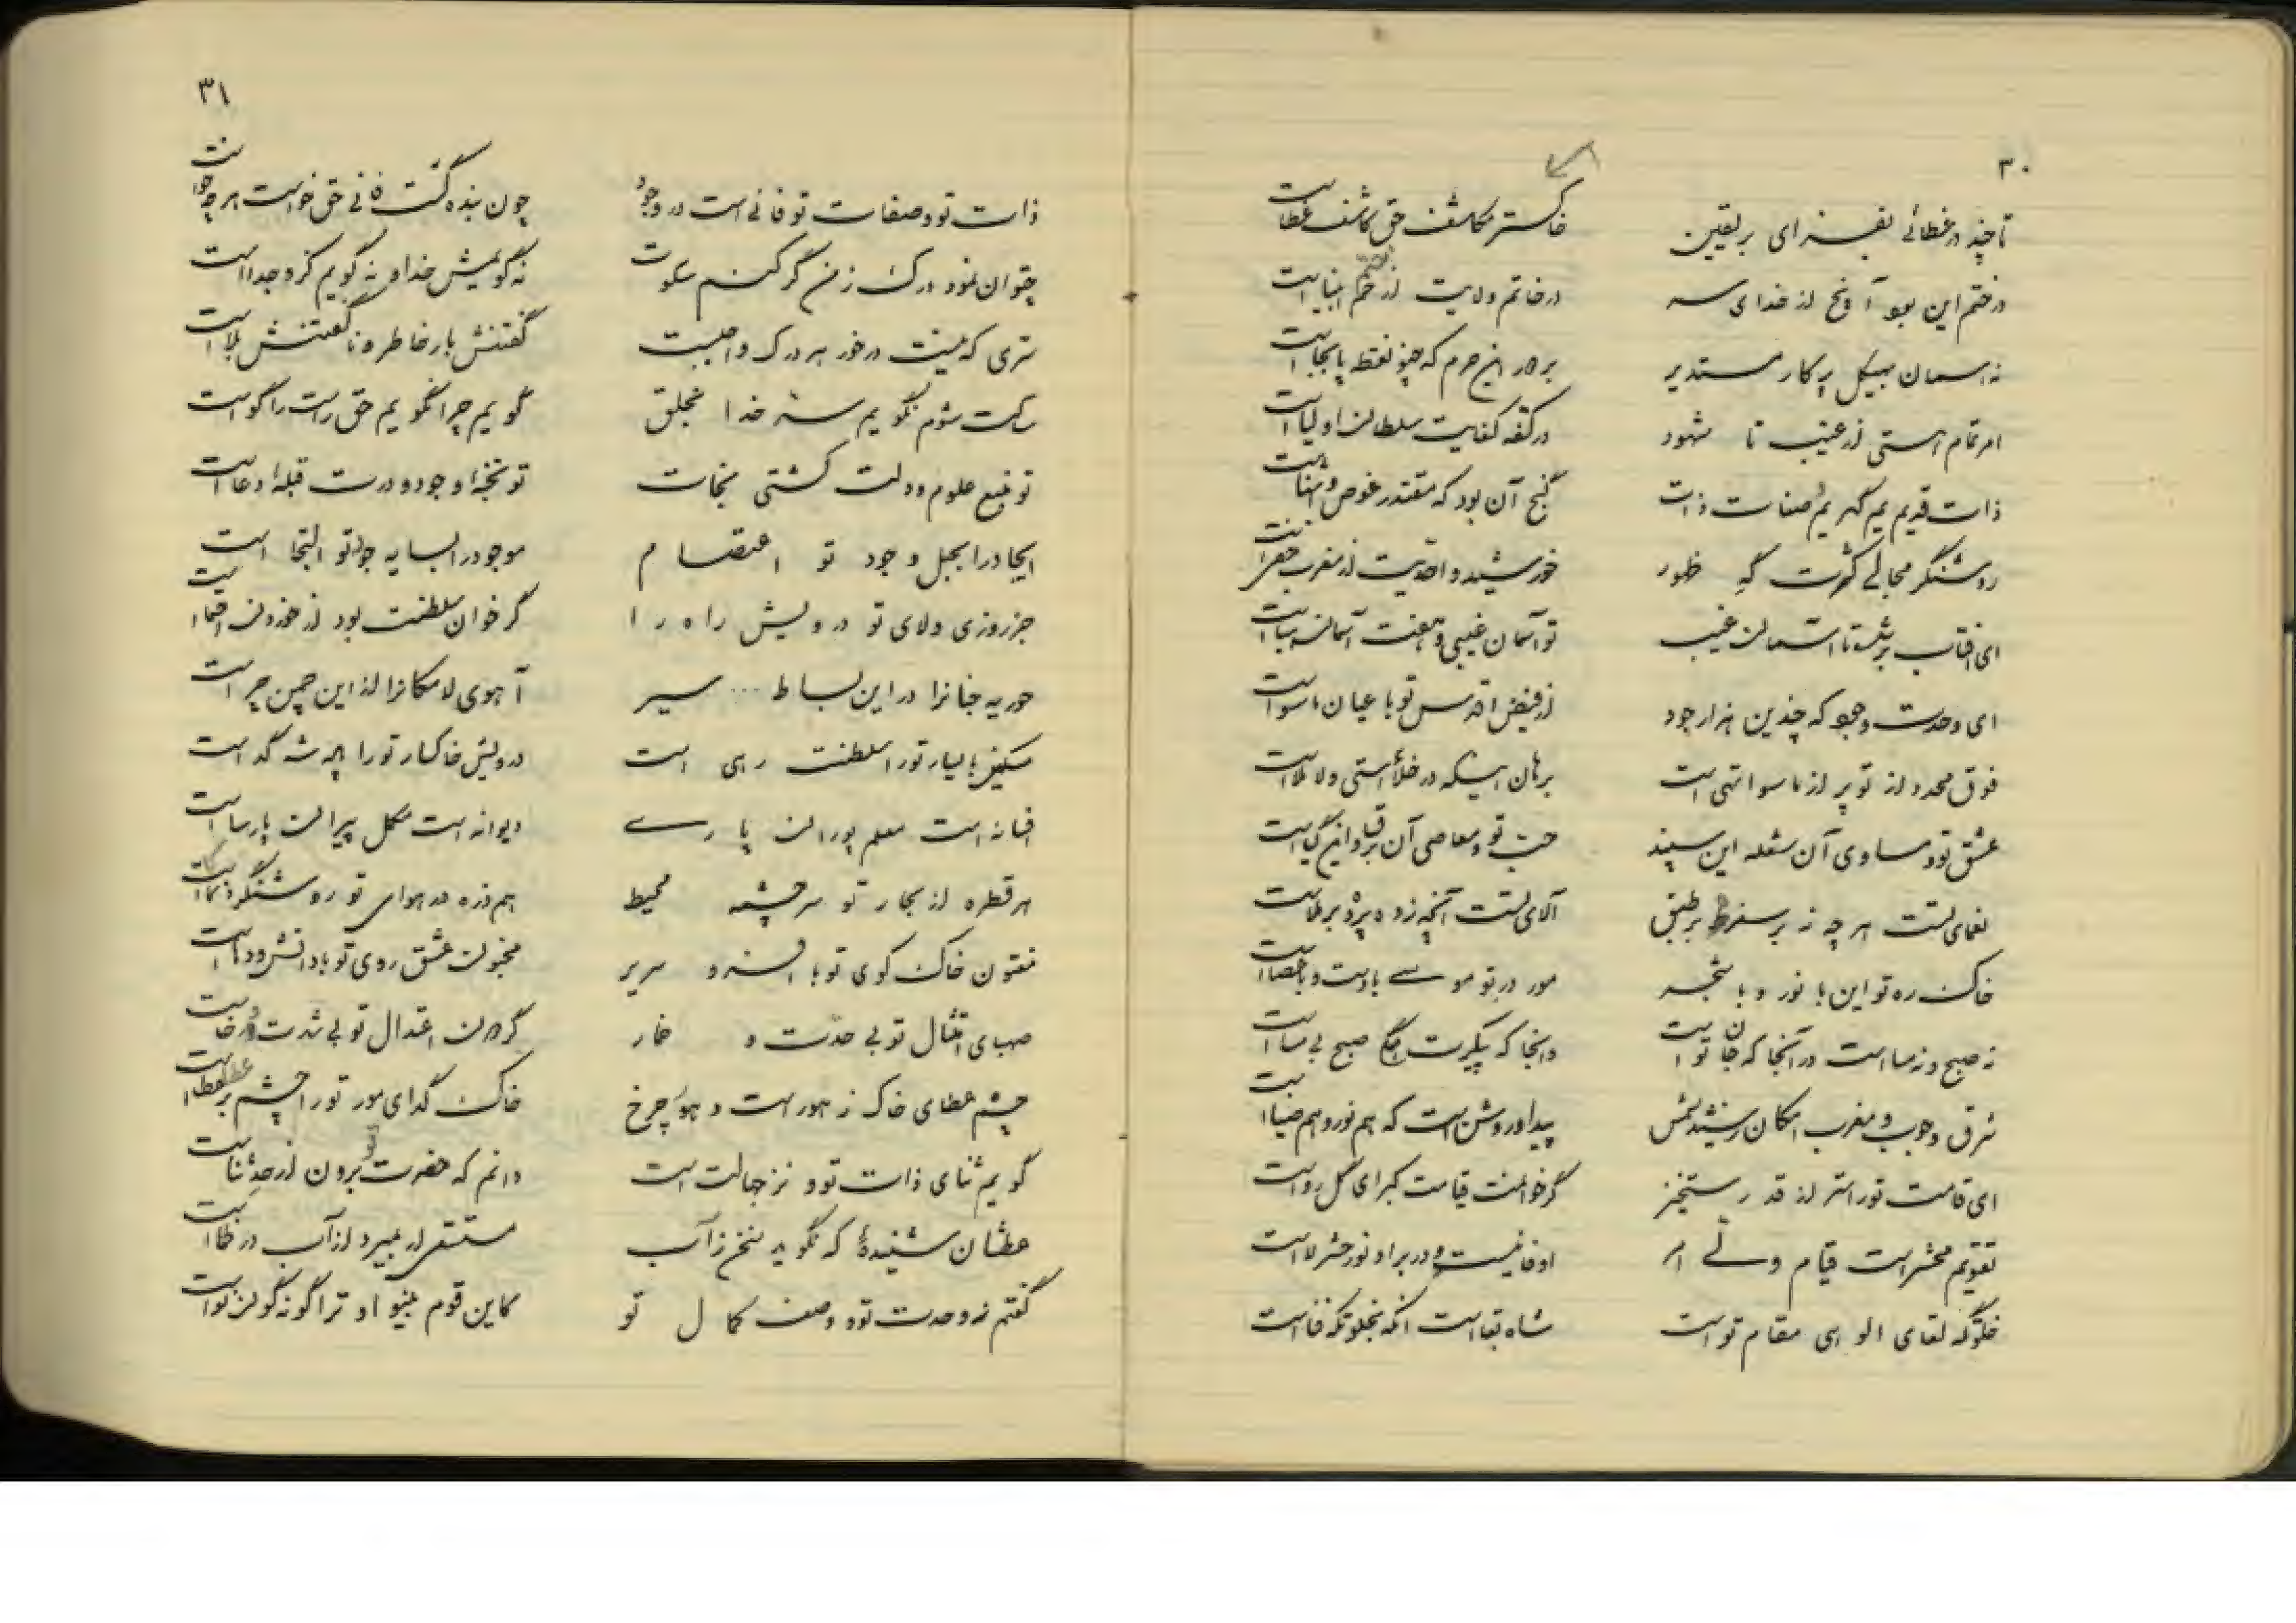 ۳۰
تا چند در غطائی بفسزای بر یقین
خاکستر مکاشف حق کاشف غطاست
در ختم این
در خاتم ولایت از ختم انبیاست
نه آسمان بهیکل پرکار مستدیر
بر دور این حرم که چو نقطه پابجاست
امر تمام هستی از غیب تا شهود
در کفه کفایت سلطان اولیاست
ذات قدیم یم گهر یم صفات ذات
گنج آن بود که مقتدر غوص و
روشنگر مجالی کثرت گه ظهور
خورشید واحدیت از مغرب
ای آفتاب
تو آسمان غیبی و هفت آسمان
ای وحدت وجود که چندین هزار جود
از فیض اقدس تو باعیان ماسواست
فوق محدد از تو پر از ماسوا تهی است
برهان اینکه در خلأ استی و لا ملاست
عشق تو و مساوی آن شعله این سپند
حب تو و معاصی آن برق و این گیاست
نعمای تست هر چه نه بر سفره بر طبق
آلای تست آنچه زده
خاک ره تو این با نور و با شجر
مور در تو موسی با دست و با عصاست
نه صبح و نه مسا است در آنجا که جان تو است
و اینجا که پیکرت همگی صبح بی مساست
شرق وجوب و مغرب امکان
پیدا و روشن است که هم نور و هم ضیاست
ای قامت تو راستر از قد رستخیز
گر خوانمت قیامت کبرای کل رواست
تقویم محشر است قیام
او فانیست و در بر او نور حشر لاست
خلوتگه لقای الوهی مقام تو است
شاه بقا است آنکه بخلوتگه فناست
۳۱
ذات تو و صفات تو فانی است در وجود
چون بنده گشت فانی حق خواست هر چه خواست
نتوان نمود درک ز من گر کنم سکوت
نه گویمش خدا و نه گویم کزو جداست
سری که نیست در خور هر درک واجبست
گفتنش بار خاطر و ناگفتنش بلاست
ساکت شوم نگویم سر خدا بخلق
گویم چرا نگویم حق راست راگو است
تو منبع علوم و دلت کشتی نجات
تو نخبه وجود و درت قبله دعاست
ایجاد را بحبل وجود تو اعتصام
موجود را بسایه جود تو التجا است
جز روزی ولای تو درویش راه را
گر خوان سلطنت بود از خوردن احتماست
حوریه جنان را در این بساط ... سیر
آهوی لامکان را از این چمن چراست
مسکین با یسار تو را سلطنت رهی است
درویش خاکسار تو را پادشه گداست
افسانه است معلم پوران پارسی
دیوانه است مکمل پیران پارساست
هر قطره از بحار تو سرچشمه محیط
هم ذره در هوای تو روشنگر ذکاست
مفتون خاک کوی تو با افسر و سریر
مجنون عشق روی تو با دانش و دهاست
صهبای امتثال تو بی حدت و خمار
گردون اعتدال تو بی شدت و رخاست
چشم عطای خاک ز هور است و هور چرخ
خاک گدای مور تو را چشم بر عطاست
گویم ثنای ذات تو و نزجهالت است
دانم که حضرت تو برون از حد ثناست
عطشان شنیده که نگوید سخن ز آب
مستسقی ار بمیرد از آب در ظماست
گفتم ز وحدت تو و وصف کمال تو
کاین قوم بینوا و تراگونه گون نواست